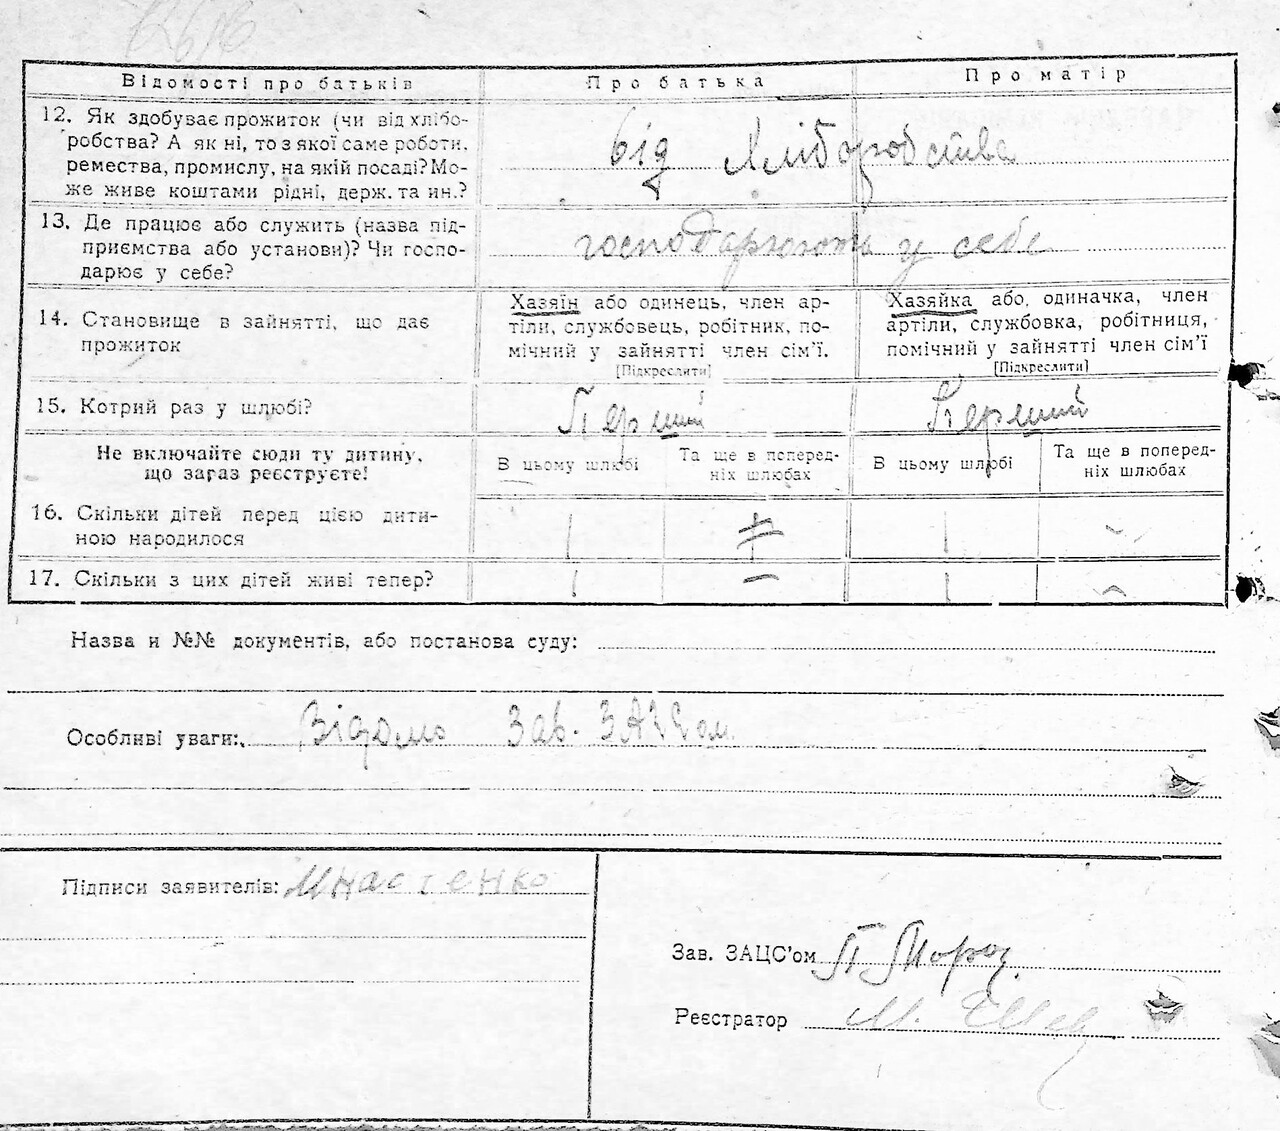 Відомості про батьків
Про батька
Про матір
12. Як здобуває прожиток (чи від хлібо-
робства? А як ні, то з якої саме роботи,
ремества, промислу, на якій посаді? Мо-
же живе коштами рідні, держ. та ин.?
від хліборобства
13. Де працює або служить (назва під-
приємства або установи)? Чи госпо-
дарює у себе?
господарюють у себе
14. Становище в зайнятті, що дає
прожиток
Хазяїн або одинець, член ар-
тіли, службовець, робітник, по-
мічний у зайнятті член сім'ї.
[Підкреслити]
Хазяйка або, одиначка, член
артіли, службовка, робітниця,
помічний у зайнятті член сім'ї
[Підкреслити]
15. Котрий раз у шлюбі?
Перший
Перший
Не включайте сюди ту дитину,
що зараз реєструєте!
В цьому шлюбі
Та ще в поперед-
ніх шлюбах
В цьому шлюбі
Та ще в поперед-
ніх шлюбах
16. Скільки дітей перед цією дити-
ною народилося
17. Скільки з цих дітей живі тепер?
Назва и №№ документів, або постанова суду:
Особливі уваги: Відомо Зав. ЗАЦСом
Підписи заявителів:
Зав. ЗАЦС'ом П Мороз
Реєстратор М.